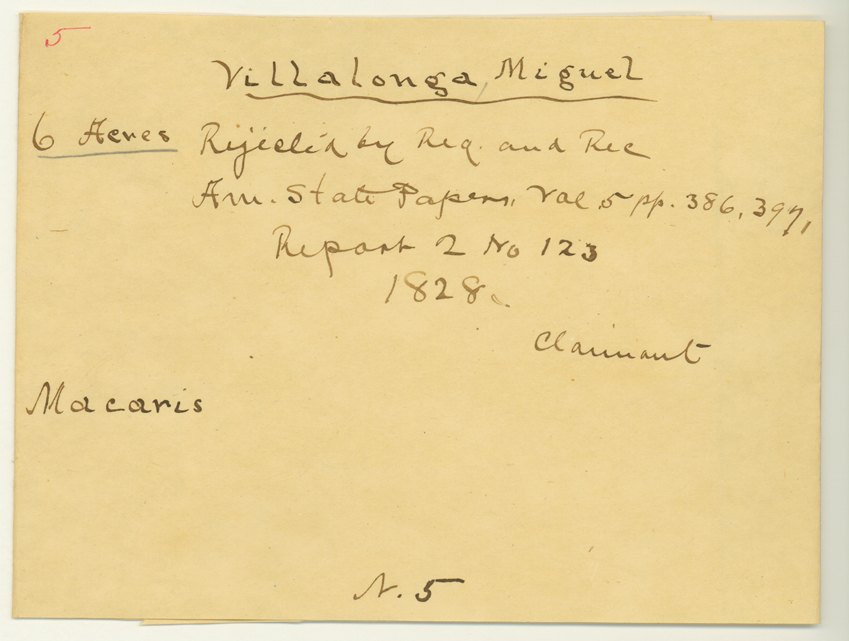 5
Villalonga, Miguel
6 Acres Rejected by Reg. and Rec
Am. State Papers, Vol 5 pp. 386, 397,
Report 2 No 123
1828.
Claimant
Macaris
N. 5